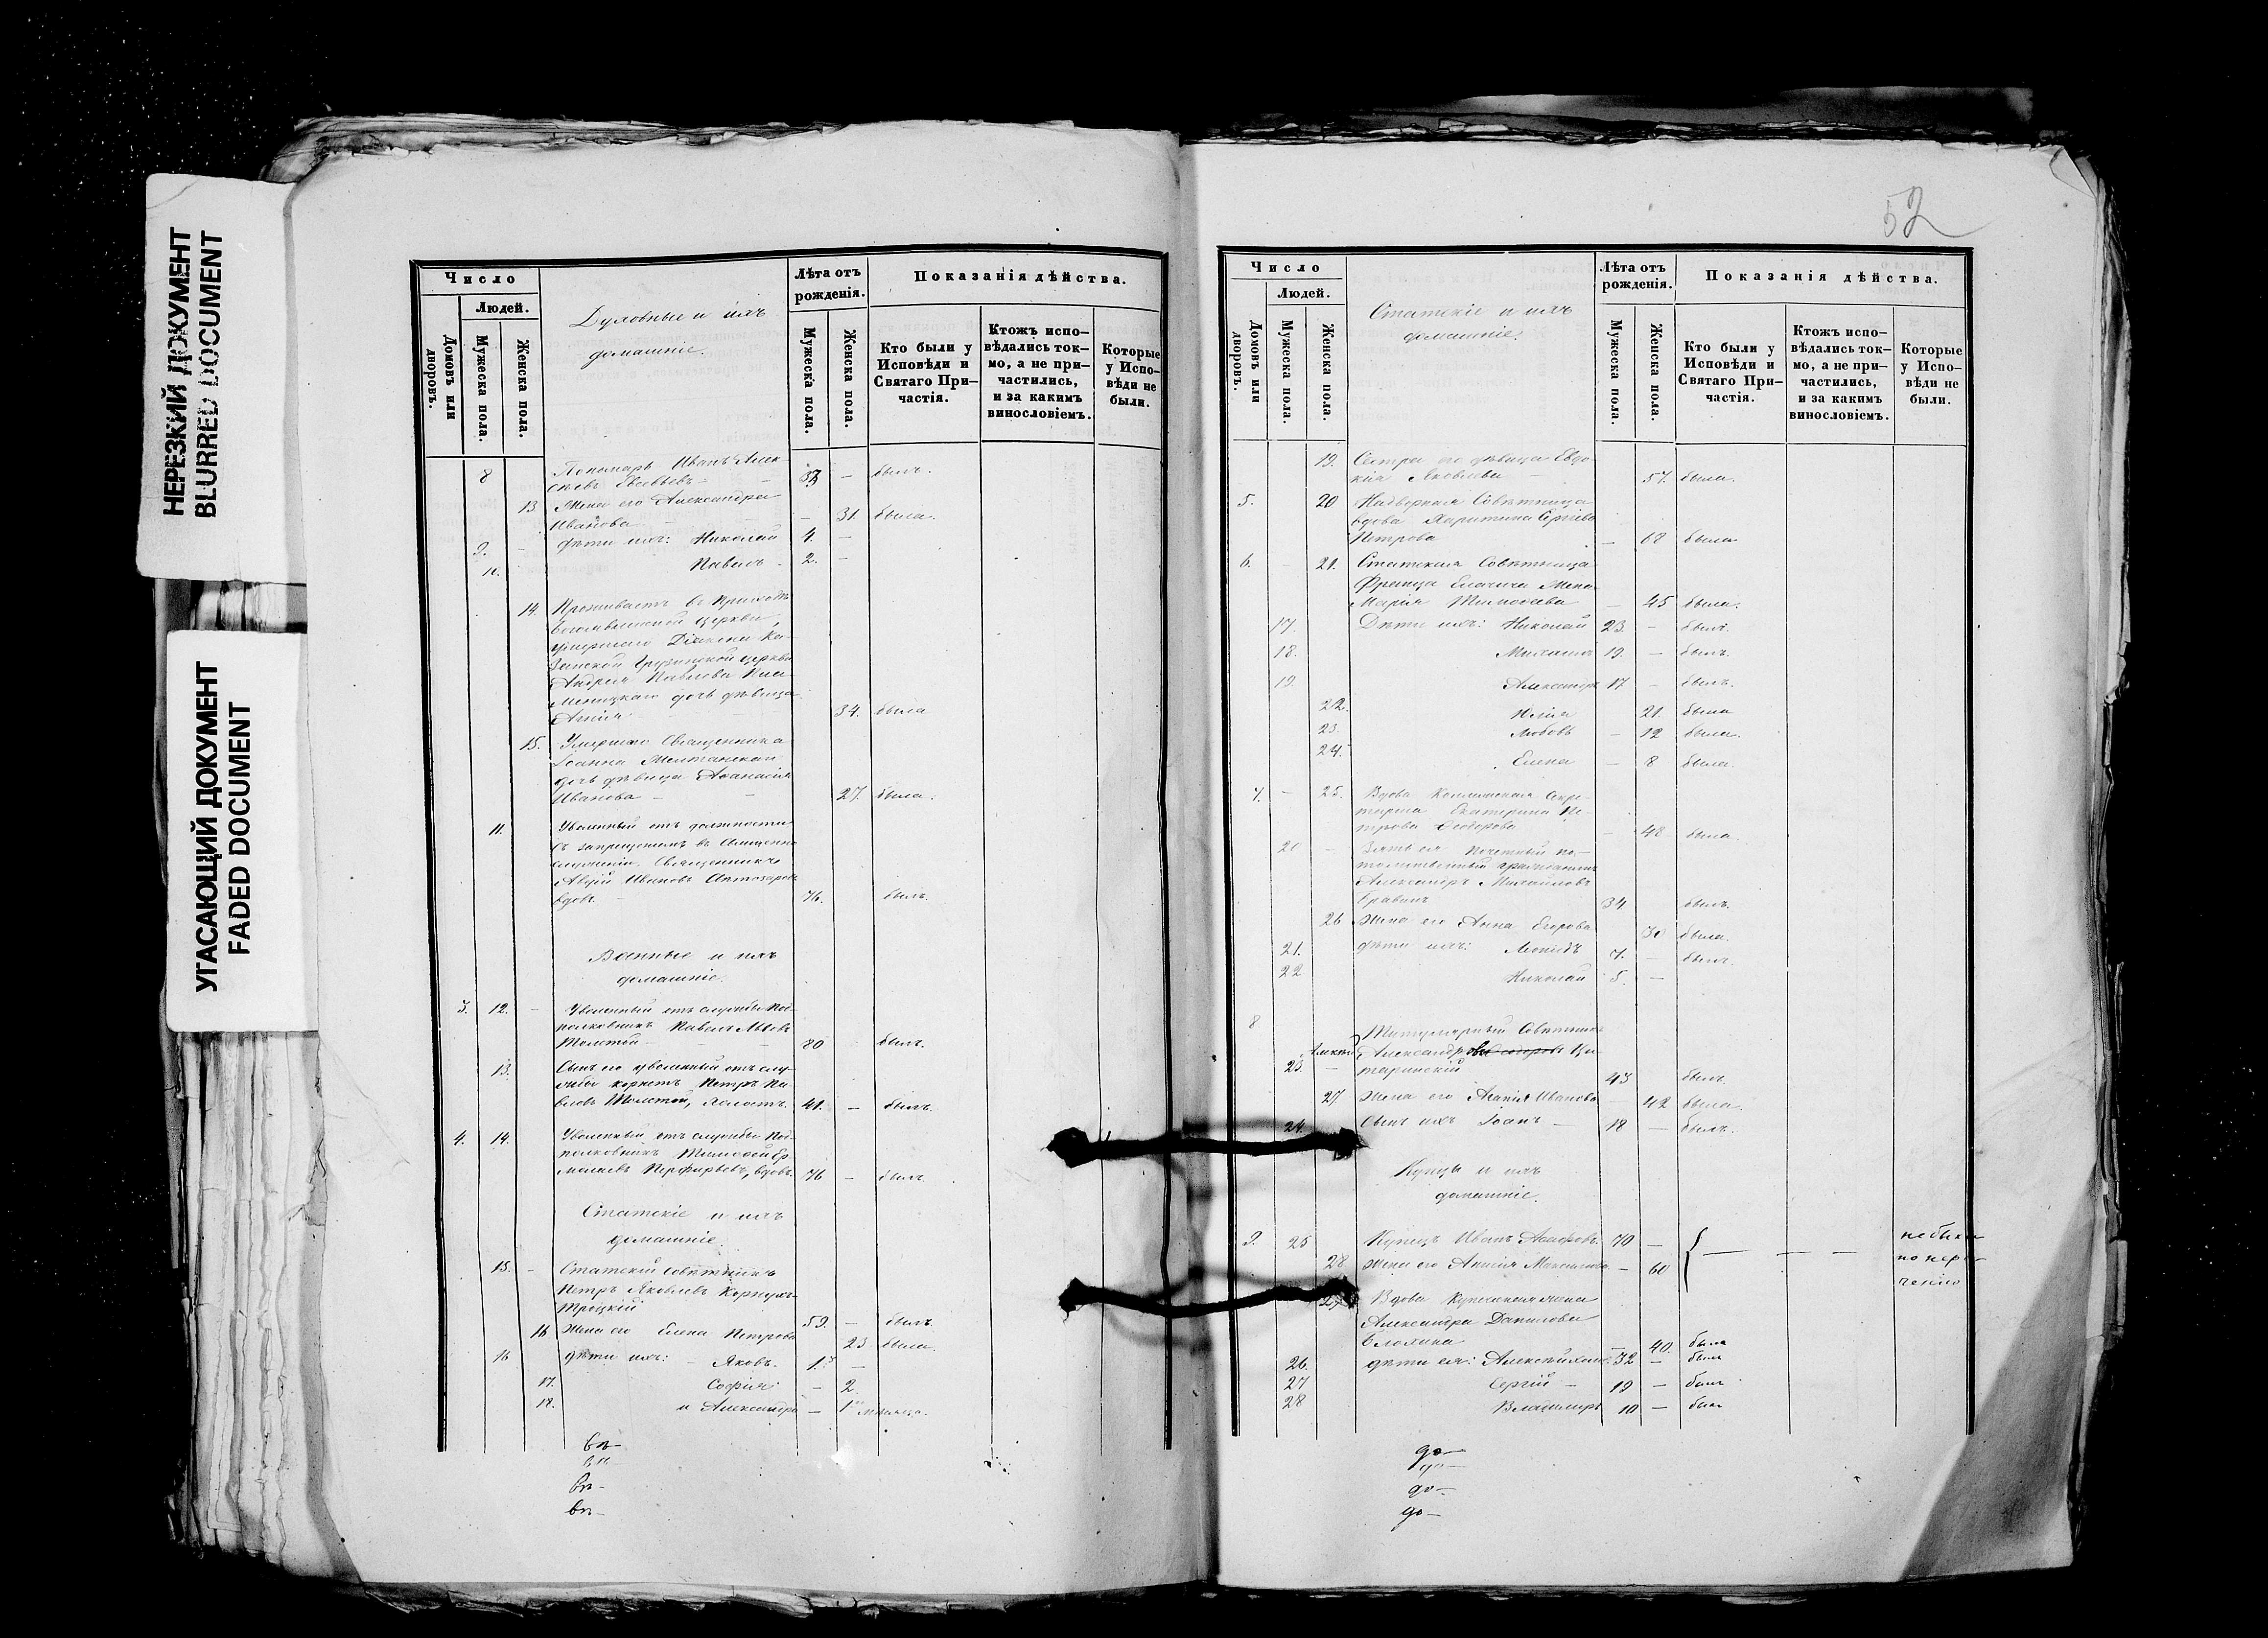 НЕРЕЗКИЙ ДОКУМЕНТ
BLURRED DOCUMENT
УГАСАЮЩИЙ ДОКУМЕНТ
FADED DOCUMENT
Число
Людей.
Домовъ или дворовъ.
Мужеска пола.
Женска пола.
Духовные и ихъ
домашніе.
Лѣта отъ
рожденія.
Мужеска пола.
Женска пола.
Показанія дѣйства.
Кто были у
Исповѣди и
Святаго При-
частія.
Ктожъ испо-
вѣдались ток-
мо, а не при-
частились,
и за какимъ
винословіемъ.
Которые
у Испо-
вѣди не
были.
8 Пономарь Иванъ Алек-
сѣевъ Евсевьевъ - 33 - былъ.
13 Жена его Александра
Иванова - 31. была.
9. - дѣти ихъ: Николай 4. -
10. Павелъ - 2. -
14. Проживаетъ въ приходѣ
Богоявленской церкви,
умершаго Діакона Ка-
занской Грузинской церкви
Андрея Павлова
дочь дѣвица
34. была
15. Умершаго Священника
Іоанна
дочь дѣвица Аѳанасія
Иванова - 27. была.
11. Уволенный отъ должности
съ запрещеніемъ въ Священно
служеніи, Священникъ
Иванов
вдовъ - 76. былъ.
Военные и ихъ
домашніе.
3. 12. - Уволенный отъ службы Под-
полковникъ Павелъ Львовъ
Толстой - 80 былъ.
13. Сынъ его уволенный отъ слу-
жбы корнетъ Петръ Па-
вловъ Толстой, холостъ. 41. - былъ.
4. 14. Уволенный отъ службы Под-
полковникъ Тимоѳей Ер-
молаевъ Перфирьевъ, вдовъ. 76 - былъ.
Статскіе и ихъ
домашніе.
15. - Статскій совѣтникъ
Петръ Яковлевъ Корнухъ-
Троцкій 59. - былъ.
16 Жена его Елена Петрова 23 была.
16 дѣти ихъ: - Яковъ. 1. -
17. Софія - 2.
18. и Александра - 1 мѣсяца.
въ-
въ-
въ-
въ-
52
Число
Людей.
Домовъ или дворовъ.
Мужеска пола.
Женска пола.
Статскіе и ихъ
домашніе.
Лѣта отъ
рожденія.
Мужеска пола.
Женска пола.
Показанія дѣйства.
Кто были у
Исповѣди и
Святаго При-
частія.
Ктожъ испо-
вѣдались ток-
мо, а не при-
частились,
и за какимъ
винословіемъ.
Которые
у Испо-
вѣди не
были.
19. Сестра его дѣвица Евдо-
кія Яковлева - 57. была.
5. 20 Надворная Совѣтница
вдова Харитина Сергѣева
Петрова - 68 была
6. - 21. Статская Совѣтница
Франца Жена
Марія Тимоѳева - 45 была.
17. Дѣти ихъ: Николай 23. - былъ.
18. Михаилъ 19. - былъ.
19. Александръ 17 - былъ.
22. Юлія 21. была
23. Любовь - 12 была.
24. Елена - 8 была.
7. - 25. Вдова Секре-
тарша Екатерина Пе-
трова Ѳедорова - 48 была.
20 - Зять ея почетный по-
томственный гражданинъ
Александръ Михаиловъ
34 былъ.
26 Жена его Анна Егорова 30 была.
21. дѣти ихъ: Леонидъ 7. - былъ.
22 Николай 5. -
8 Титулярный Совѣтникъ
23. - Александръ
43 былъ.
27 Жена его Агапія Иванова - 42 была.
24. Сынъ ихъ Іоанъ - 18 - былъ.
Купцы и ихъ
домашніе.
9. 25 Купецъ Иванъ 70 - не были
28 Жена его Анисія Максимова - 60 - - - по нера-
ченію
29 Вдова Купеческая жена
Александра Данилова
- 40. была
26. дѣти ея: Алексѣй 32 - былъ
27 Сергій - 19 - былъ
28 Владиміръ 10 - былъ
до-
до-
до-
до-